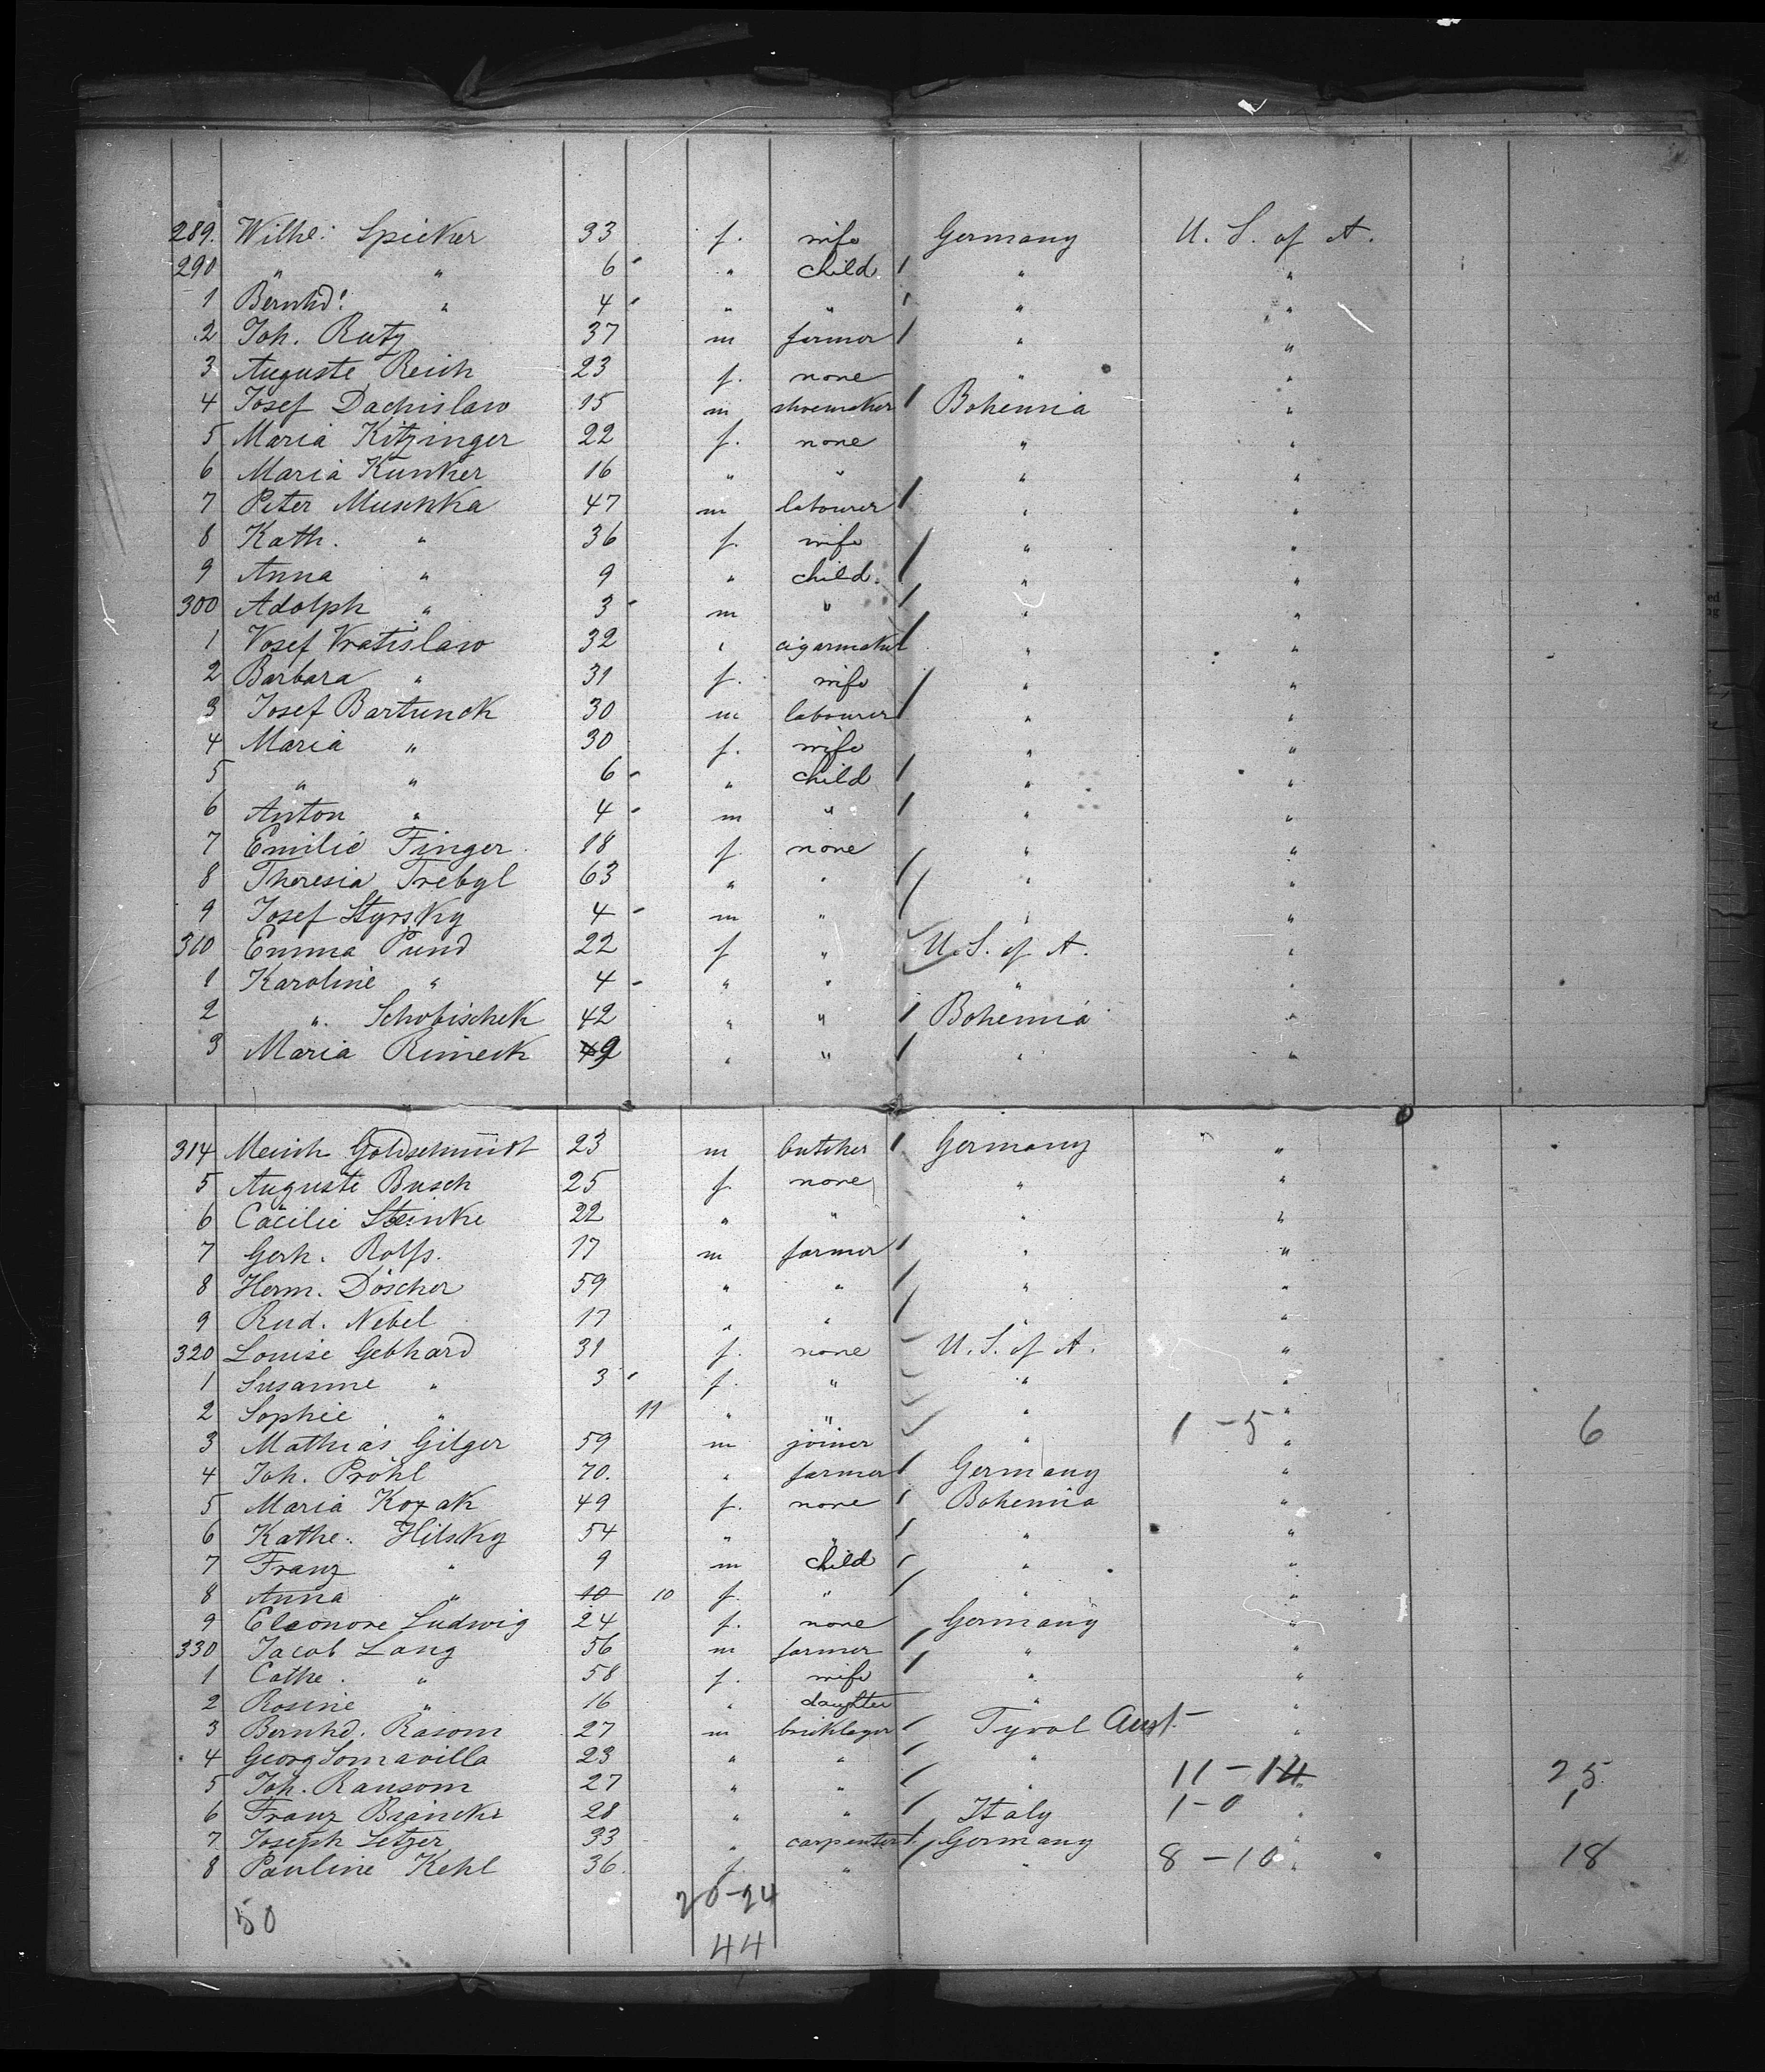 289. Wilhe. Spieker 33 f. wife Germany U. S. of A.
290 " " 6 " child " "
1 Bernhd. " 4 " " " "
2 Joh. Rutz 37 m farmer " "
3 Auguste Reich 23 f. none " "
4 Josef Dachislaw 15 m shoemaker Bohemia "
5 Maria Kitzinger 22 f. none " "
6 Maria Kunker 16 " " " "
7 Peter Muschka 47 m labourer " "
8 Kath. " 36 f. wife " "
9 Anna " 9 " child. " "
300 Adolph " 3 m " " "
1 Vosef Vratislaw 32 " cigarmaker " "
2 Barbara " 31 f. wife " "
3 Josef Bartunek 30 m labourer " "
4 Maria " 30 f. wife " "
5 " " 6 " child " "
6 Anton " 4 m " " "
7 Emilie Finger 18 f. none " "
8 Theresia Trebyl 63 " " " "
9 Josef Styrsky 4 m " " "
310 Emma Pund 22 f " U. S. of A. "
1 Karoline " 4 " " " "
2 " Schobischek 42 " " Bohemia "
3 Maria Rimeck 49 " " " "
314 Meinh Goldschmidt 23 m butcher Germany "
5 Auguste Busch 25 f. none " "
6 Cäcilie Steinke 22 " " " "
7 Gerh. Rolfs. 17 m farmer " "
8 Herm. Döscher 59 " " " "
9 Rud. Nebel 17 " " " "
320 Louise Gebhard 31 f. none U. S. of A. "
1 Susanne " 3 f. " " "
2 Sophie " 11 " " " "
3 Mathias Gilger 59 m joiner " 1-5 " 6
4 Joh. Pröhl 70. " farmer Germany "
5 Maria Kozak 49 f. none Bohemia "
6 Kathe. Hilsky 54 " " " "
7 Franz " 9 m child " "
8 Anna " 10 10 f. " " "
9 Eleonore Ludwig 24 f. none Germany "
330 Jacob Lang 56 m farmer " "
1 Cathe. " 58 f. wife " "
2 Rosine " 16 " daughter " "
3 Bernhd. Rasom 27 m bricklayer Tyrol Aust. "
4 Georg Somavilla 23 " " "
5 Joh. Ransom 27 " " " 11-14 " 25
6 Franz 28 " " Italy 1-0 " 1
7 Joseph Setzer 33 " carpenter Germany "
8 Pauline Kehl 36. f. " " 8-10 " 18
50 20-24
44